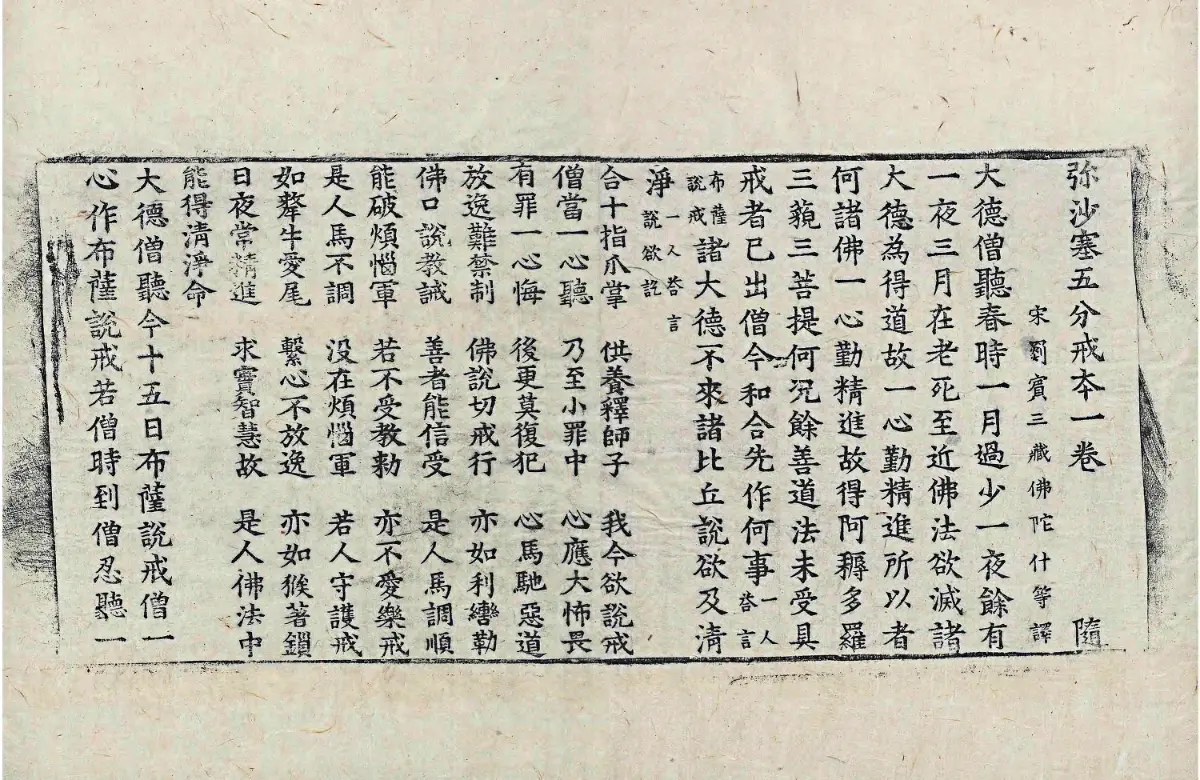 弥沙塞五分戒夲一卷　隨
宋罽賓三藏佛陀什等譯
大德僧聽春時一月過少一夜餘有
一夜三月在老死至近佛法欲滅諸
大德為得道故一心勤精進所以者
何諸佛一心勤精進故得阿耨多羅
三藐三菩提何况餘善道法未受具
戒者已出僧今和合先作何事一人荅言
布薩說戒諸大德不來諸比丘說欲及清
淨一人荅言說欲訖
合十指爪掌　供養釋師子　我今欲說戒
僧當一心聽　乃至小罪中　心應大怖畏
有罪一心悔　後更莫復犯　心馬馳惡道
放逸難禁制　佛說切戒行　亦如利轡勒
佛口說教誡　善者能信受　是人馬調順
能破煩惱軍　若不受教勑　亦不愛樂戒
是人馬不調　没在煩惱軍　若人守護戒
如犛牛愛尾　繫心不放逸　亦如猴著鎖
日夜常精進　求實智慧故　是人佛法中
能得清淨命
大德僧聽今十五日布薩說戒僧一
心作布薩說戒若僧時到僧忍聽一